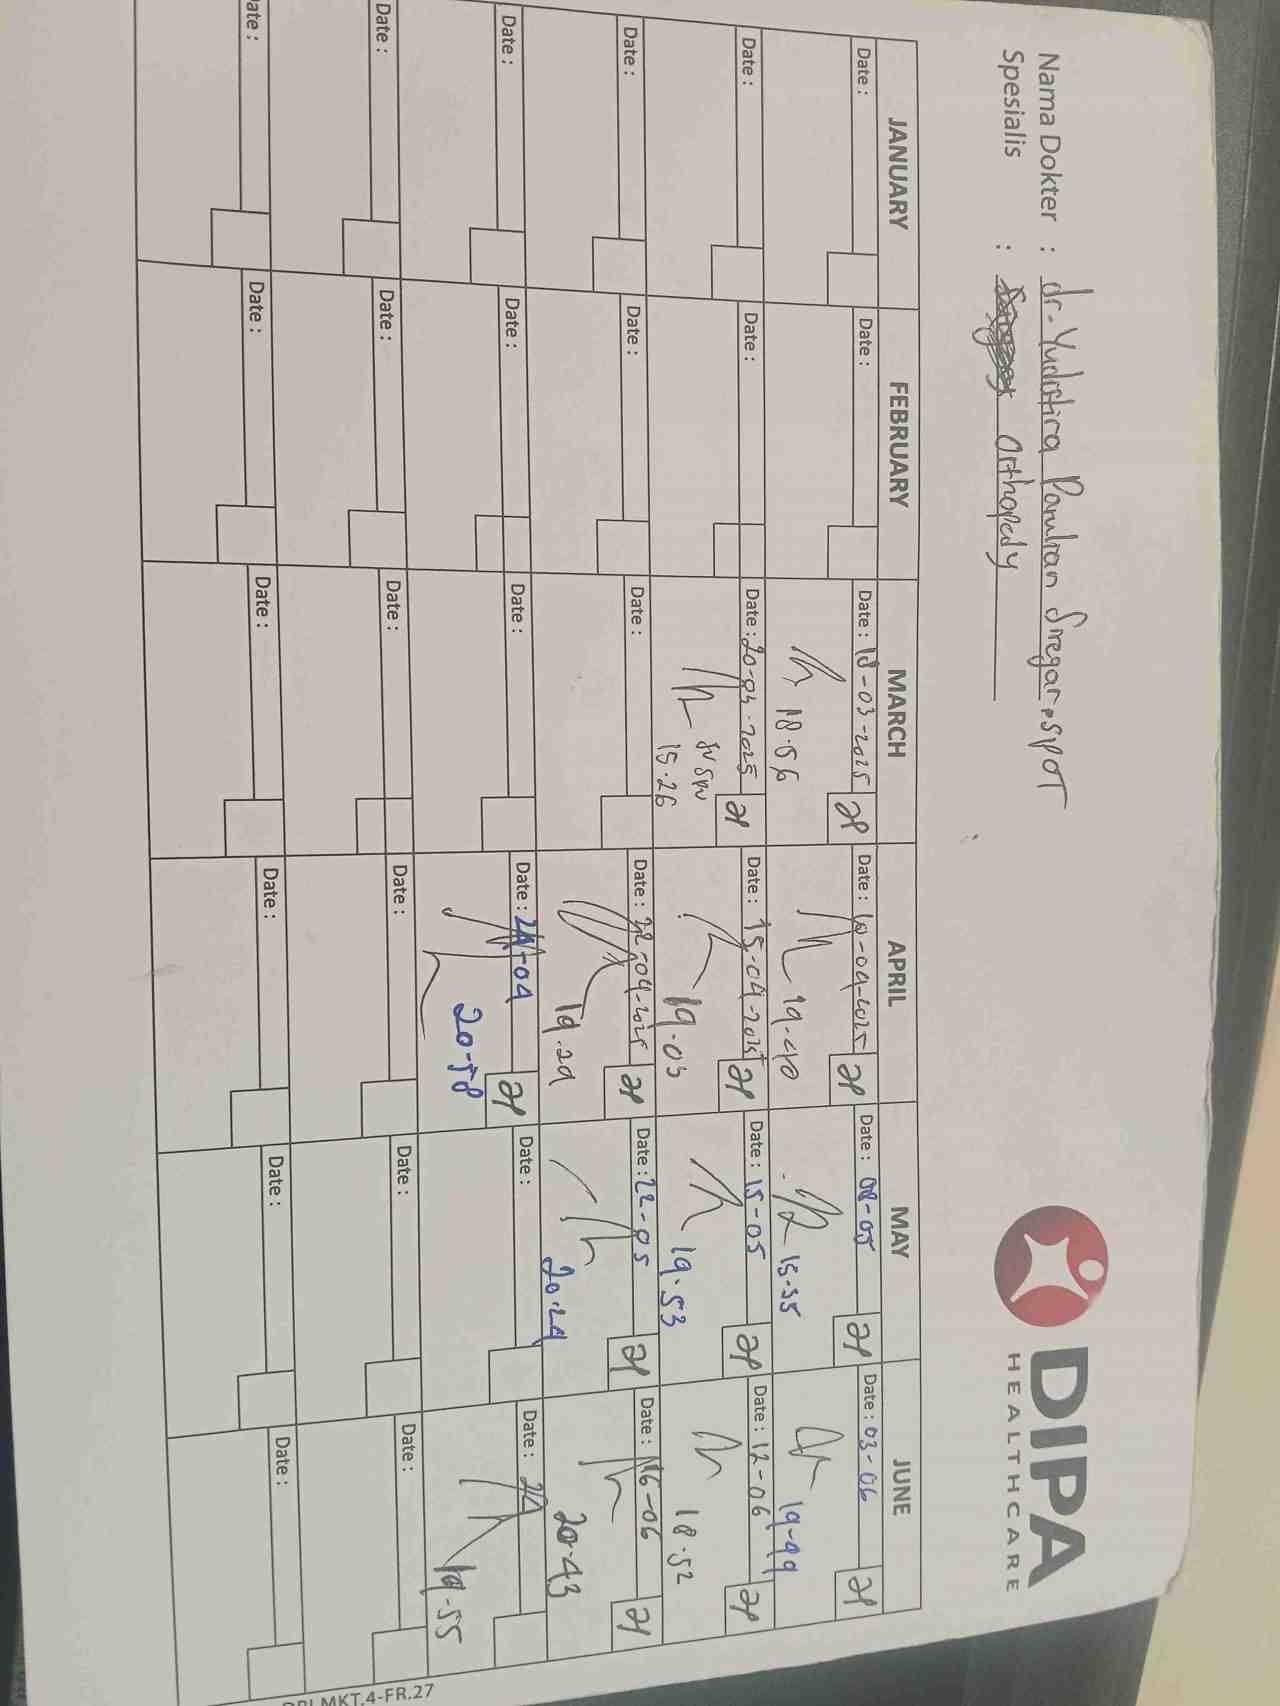 DIPA
HEALTHCARE
Nama Dokter : dr. Yudistira Panulian Siregar, SpOT
Spesialis : Orthopedy
JANUARY FEBRUARY MARCH APRIL MAY JUNE
Date : Date : Date : 18-03-2025 Date : 10-04-2025 Date : 08-05 Date : 03-06
18.56 19.40 15.35 19-49
Date : Date : Date : 20-03-2025 Date : 15-04-2025 Date : 15-05 Date : 12-06
15.26 19.03 19.53 18.52
Date : Date : Date : Date : 22-04-2025 Date : 22-05 Date : 16-06
19.29 20.24 20.43
Date : Date : Date : Date : 24-04 Date : Date : 24
20-58 19.55
Date : Date : Date : Date : Date : Date :
Date : Date : Date : Date : Date : Date :
MKT.4-FR.27